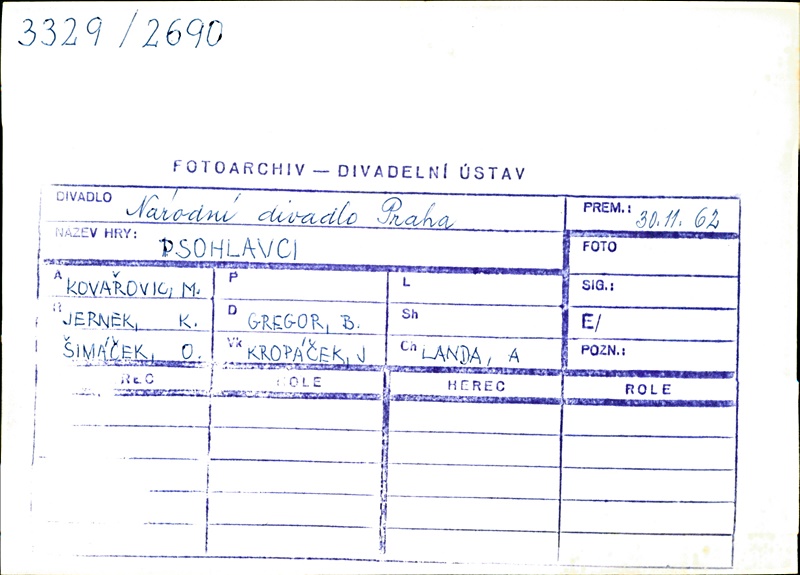 3329/2690
FOTOARCHIV — DIVADELNÍ ÚSTAV
DIVADLO Národní divadlo Praha PREM.: 30.11. 62
NÁZEV HRY: PSOHLAVCI FOTO
A KOVAŘOVIC, M. P L SIG.:
R JERNEK, K. D GREGOR, B. Sh E/
ŠIMÁČEK, O. Vk KROPÁČEK, J Ch LANDA, A POZN.:
REC ROLE HEREC ROLE